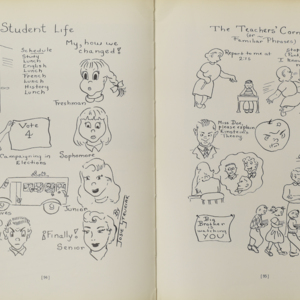 Student Life
My, how we
changed!
Schedule
Study
Lunch
English
Lunch
French
Lunch
History
Lunch
Freshman
Vote
4
Campaigning in
Elections
Sophomore
Junior
Finally!
Senior
The Teachers' Corn
(or
Familiar Phrases)
Report to me at
2:10
Miss Doe,
please explain
Einstein's
Theory
Big
Brother
is
watching
YOU